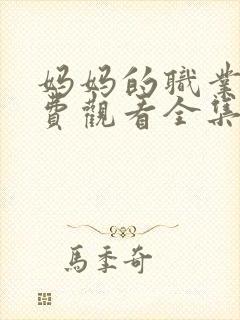 媽媽的職業
費觀看全集
馬季奇